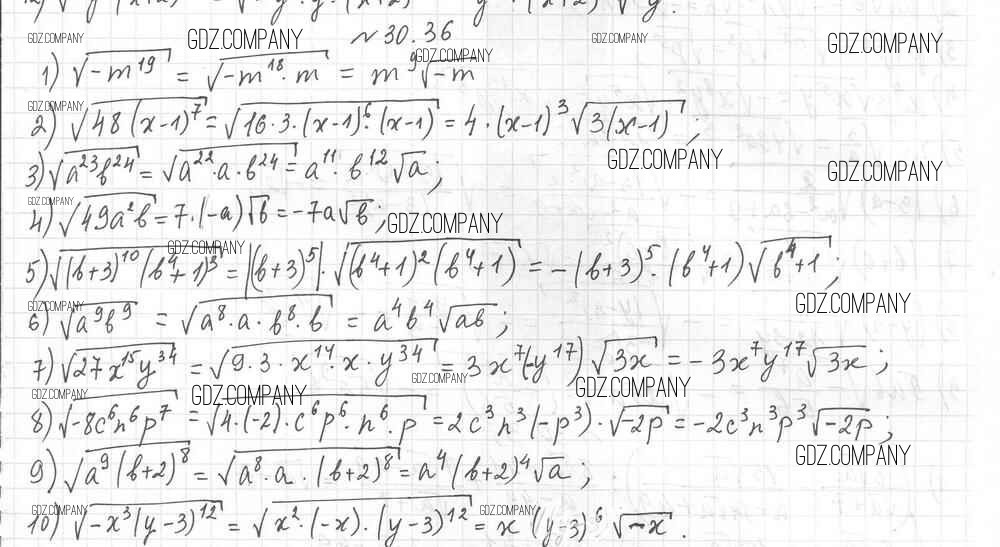 GDZ.COMPANY GDZ.COMPANY ~ 30.36 GDZ.COMPANY GDZ.COMPANY
GDZ.COMPANY
1) √(-m¹⁹) = √(-m¹⁸·m) = m⁹√(-m)
GDZ.COMPANY
2) √(48(x-1)⁷) = √(16·3·(x-1)⁶·(x-1)) = 4·(x-1)³√(3(x-1));
GDZ.COMPANY GDZ.COMPANY
3) √(a²³b²⁴) = √(a²²·a·b²⁴) = a¹¹·b¹²√a;
GDZ.COMPANY
4) √(49a²b) = 7·(-a)√b = -7a√b; GDZ.COMPANY
GDZ.COMPANY
5) √((b+3)¹⁰(b⁴+1)³) = |(b+3)⁵|·√((b⁴+1)²(b⁴+1)) = -(b+3)⁵·(b⁴+1)√(b⁴+1);
GDZ.COMPANY GDZ.COMPANY
6) √(a⁹b⁹) = √(a⁸·a·b⁸·b) = a⁴b⁴√(ab);
7) √(27x¹⁵y³⁴) = √(9·3·x¹⁴·x·y³⁴) = 3x⁷(-y¹⁷)√(3x) = -3x⁷y¹⁷√(3x);
GDZ.COMPANY GDZ.COMPANY GDZ.COMPANY GDZ.COMPANY
8) √(-8c⁶n⁶p⁷) = √(4·(-2)·c⁶p⁶·n⁶·p) = 2c³n³(-p³)·√(-2p) = -2c³n³p³√(-2p);
GDZ.COMPANY
9) √(a⁹(b+2)⁸) = √(a⁸·a·(b+2)⁸) = a⁴(b+2)⁴√a;
GDZ.COMPANY GDZ.COMPANY
10) √(-x³(y-3)¹²) = √(x²·(-x)·(y-3)¹²) = x(y-3)⁶√(-x).